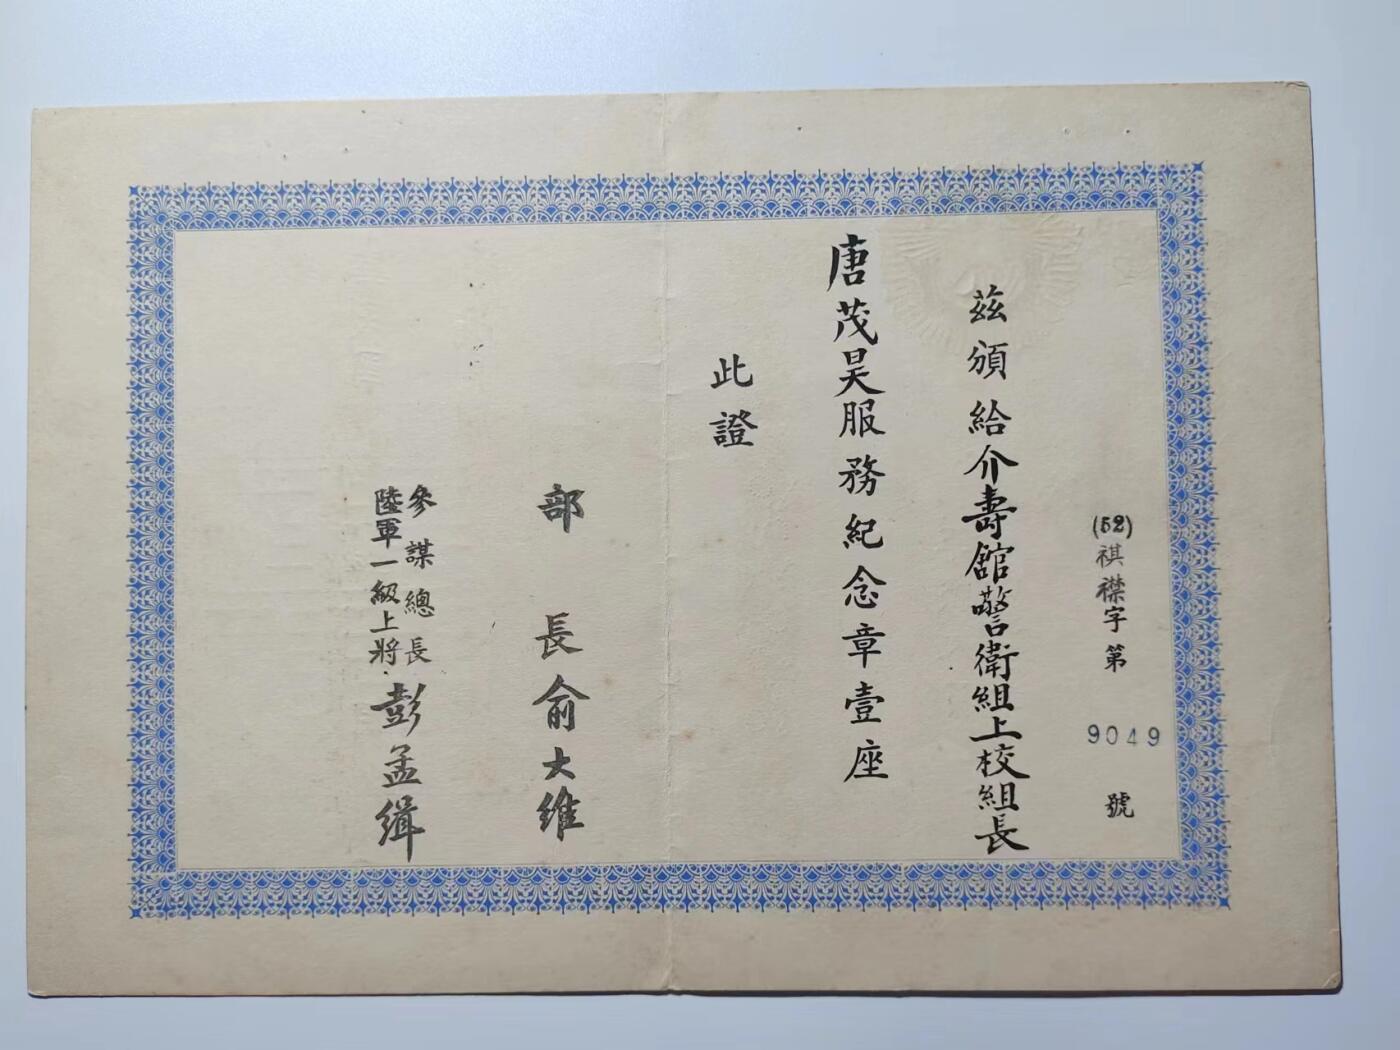 (52)祺襟字第9049號
茲頒給介壽館警衛組上校組長
唐茂昊服務紀念章壹座
此證
部長俞大維
參謀總長
陸軍一級上將彭孟緝